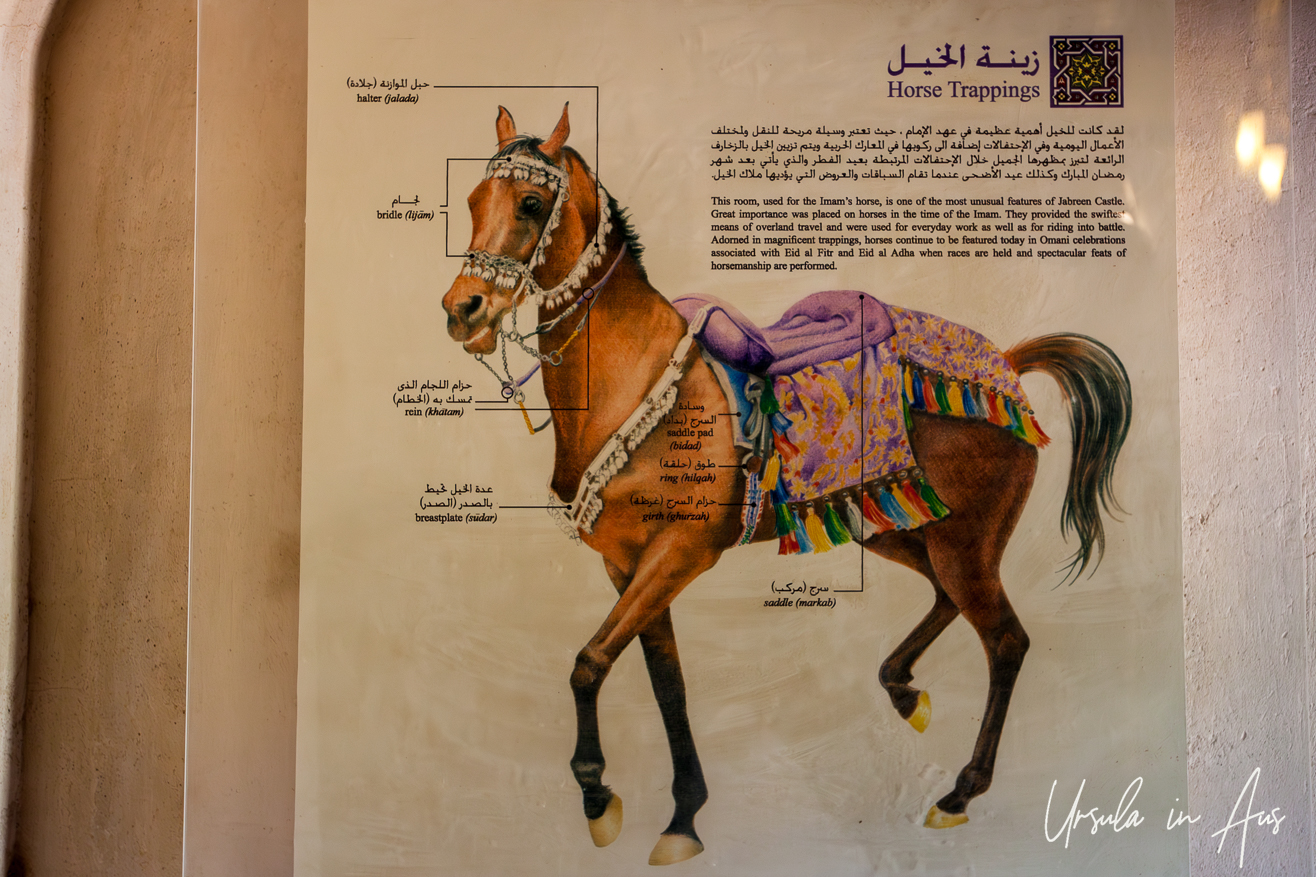 زينة الخيل
Horse Trappings
لقد كانت للخيل أهمية عظيمة في عهد الإمام ، حيث تعتبر وسيلة مريحة للنقل ولمختلف
الأعمال اليومية وفي الإحتفالات إضافة الى ركوبها في المعارك الحربية ويتم تزيين الخيل بالزخارف
الرائعة لتبرز بمظهرها الجميل خلال الإحتفالات المرتبطة بعيد الفطر والذي يأتي بعد شهر
رمضان المبارك وكذلك عيد الأضحى عندما تقام السباقات والعروض التي يؤديها ملاك الخيل.
This room, used for the Imam's horse, is one of the most unusual features of Jabreen Castle.
Great importance was placed on horses in the time of the Imam. They provided the swiftest
means of overland travel and were used for everyday work as well as for riding into battle.
Adorned in magnificent trappings, horses continue to be featured today in Omani celebrations
associated with Eid al Fitr and Eid al Adha when races are held and spectacular feats of
horsemanship are performed.
حبل الموازنة (جلادة)
halter (jalada)
لجام
bridle (lijām)
حزام اللجام الذى
تمسك به (الخطام)
rein (khātam)
وسادة
السرج (بداد)
saddle pad
(bidad)
طوق (حلقة)
ring (hilqah)
حزام السرج (غرظة)
girth (ghurzah)
عدة الخيل تحيط
بالصدر (الصدر)
breastplate (sūdar)
سرج (مركب)
saddle (markab)
Ursula in Aus